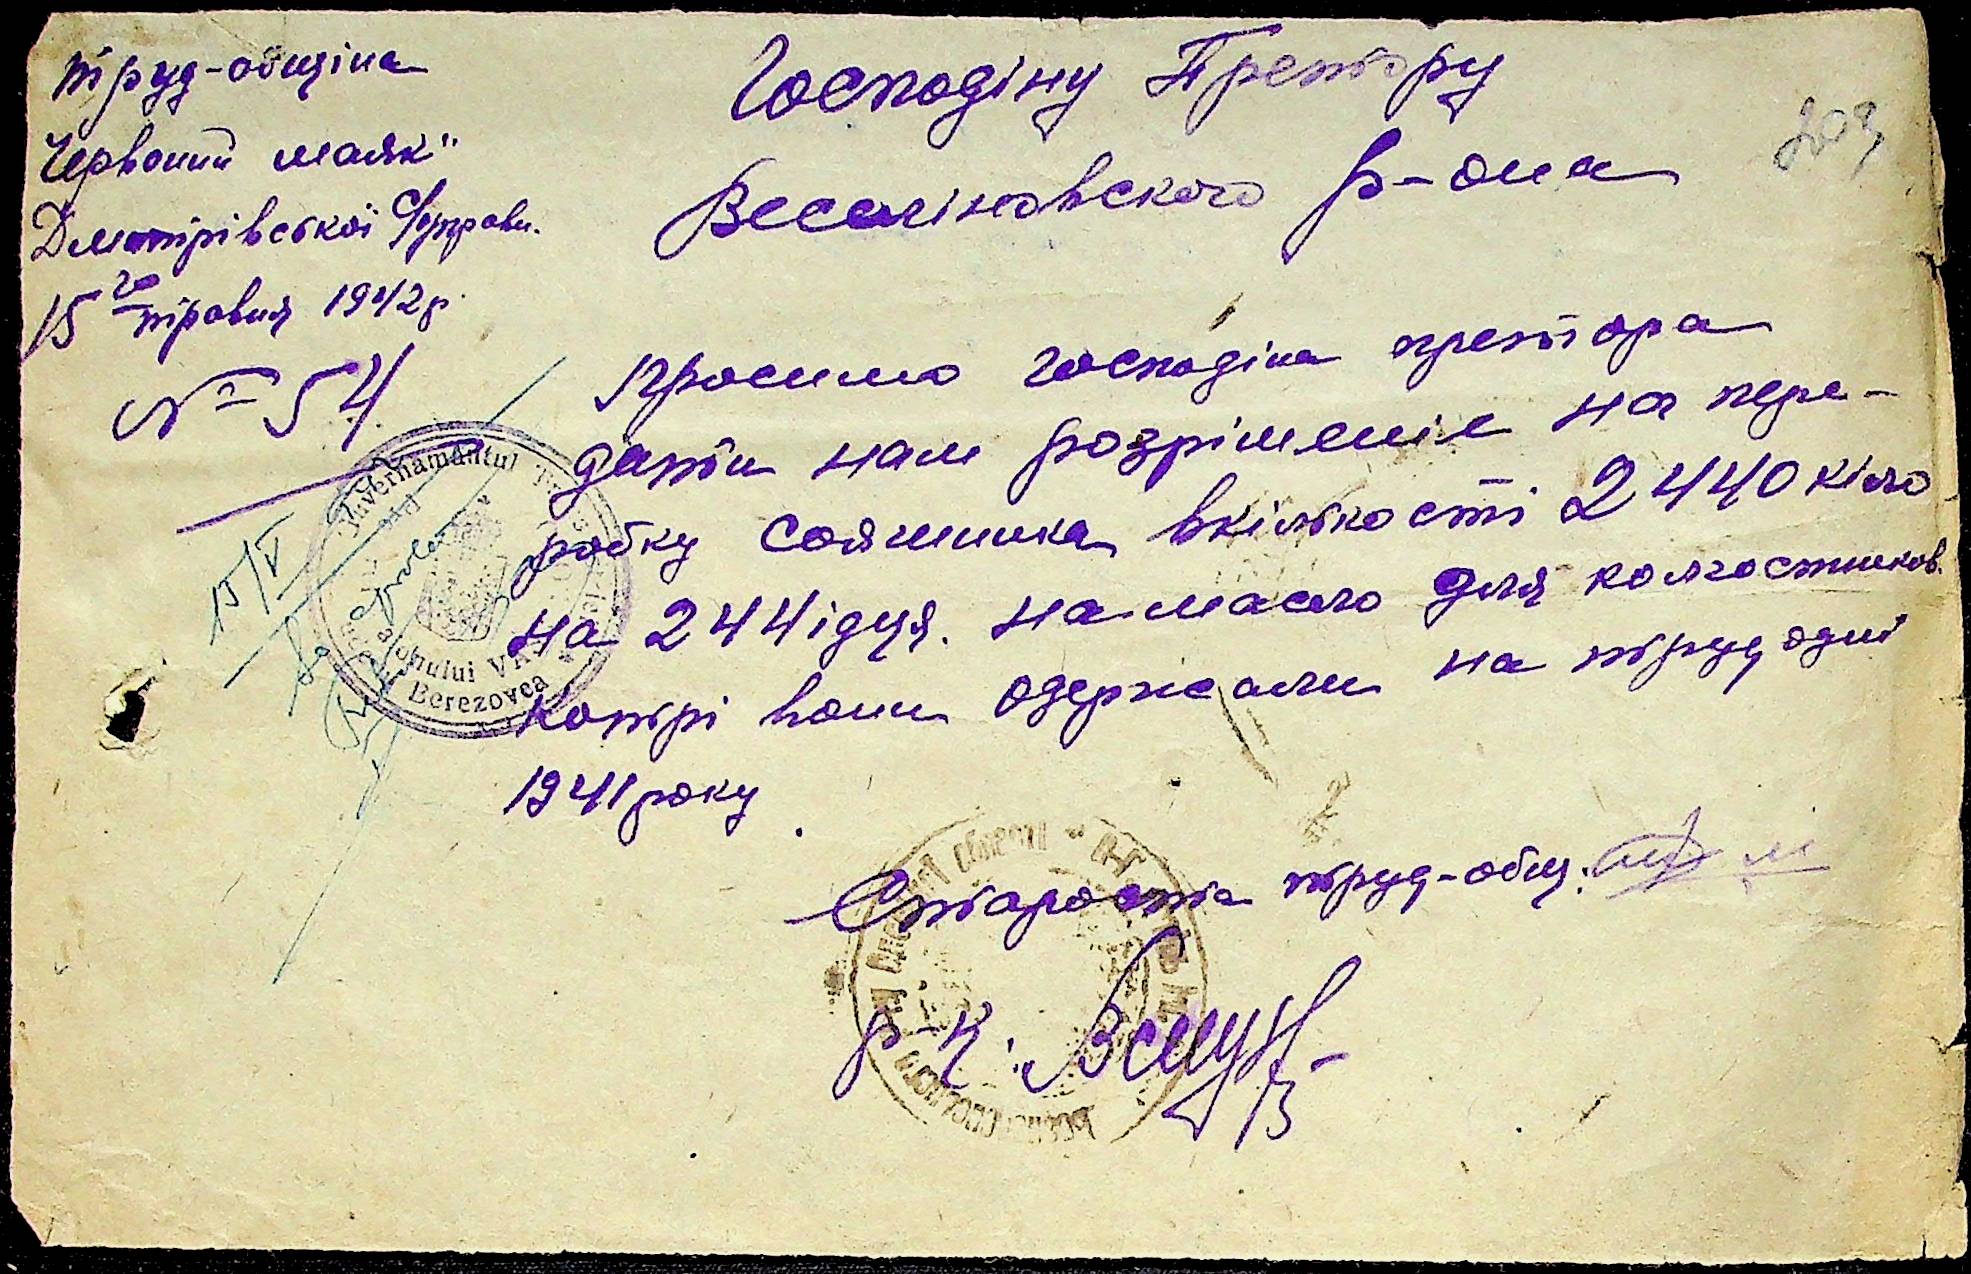 труд-общіна
Червоний маяк"
Дмитрівської С/управи.
15го травня 1942р.
№ 54
Господіну Претору
Веселіновского р-она
Просимо господіна претора
дати нам розрішеніє на пере-
робку сояшника вкількості 2440 кіло
на 244 ідця. на масло для колгоспников.
котрі вони одержали на труд одні
1941 року.
Староста труд-общ.
15/V
Guvernamantul
Raionului
Berezovca